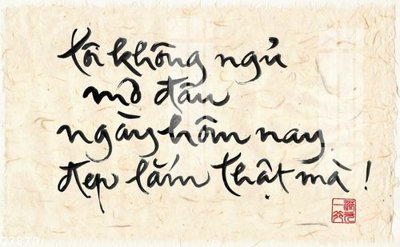 tôi không ngủ
mơ đâu
ngày hôm nay
đẹp lắm thật mà !